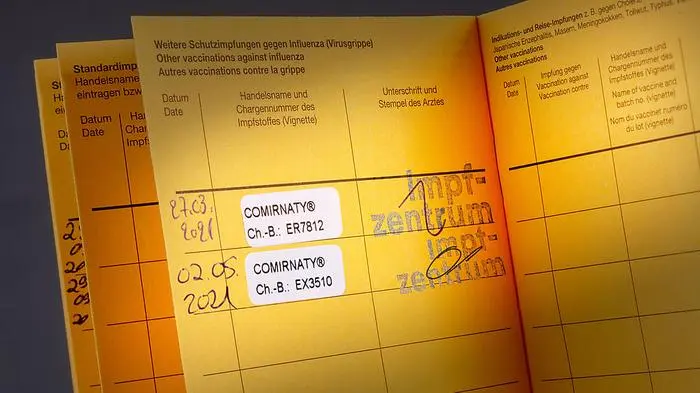 Weitere Schutzimpfungen gegen Influenza (Virusgrippe)
Other vaccinations against influenza
Autres vaccinations contre la grippe
Datum
Date
Handelsname und
Chargennummer des
Impfstoffes (Vignette)
Unterschrift und
Stempel des Arztes
27.03.
2021
COMIRNATY®
Ch.-B.: ER7812
Impf-
zentrum
02.05.
2021
COMIRNATY®
Ch.-B.: EX3510
Impf-
zentrum
Standardim
Handelsname
eintragen bzw
Datum
Date
Ha
Cha
Impfs
Indikations- und Reise-Impfungen z. B. gegen Chole
Japanische Enzephalitis, Masern, Meningokokken, Tollwut, Typhus,
Other vaccinations
Autres vaccinations
Datum
Date
Impfung gegen
Vaccination against
Vaccination contre
Handelsname und
Chargennummer des
Impfstoffes (Vignette)
Name of vaccine and
batch no. (vignette)
Nom du vaccinet numéro
du lot (vignette)